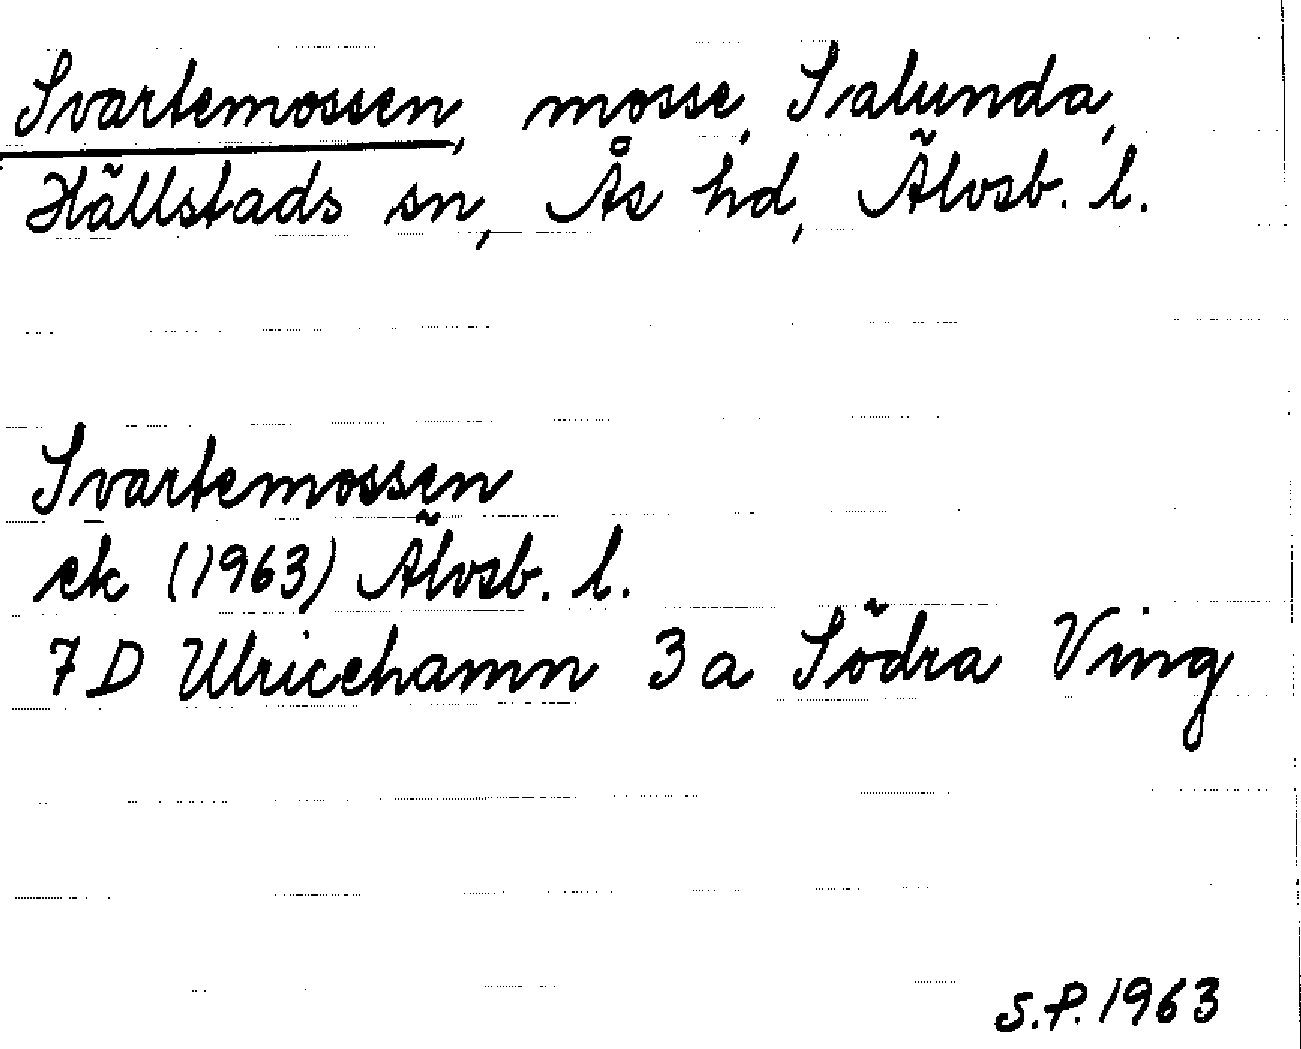 Svartemossen, mosse, Salunda,
Hällstads sn, Ås hd, Älvsb. l.
Svartemossen
ek (1963) Älvsb. l.
7 D Ulricehamn 3 a Södra Ving
S.P. 1963